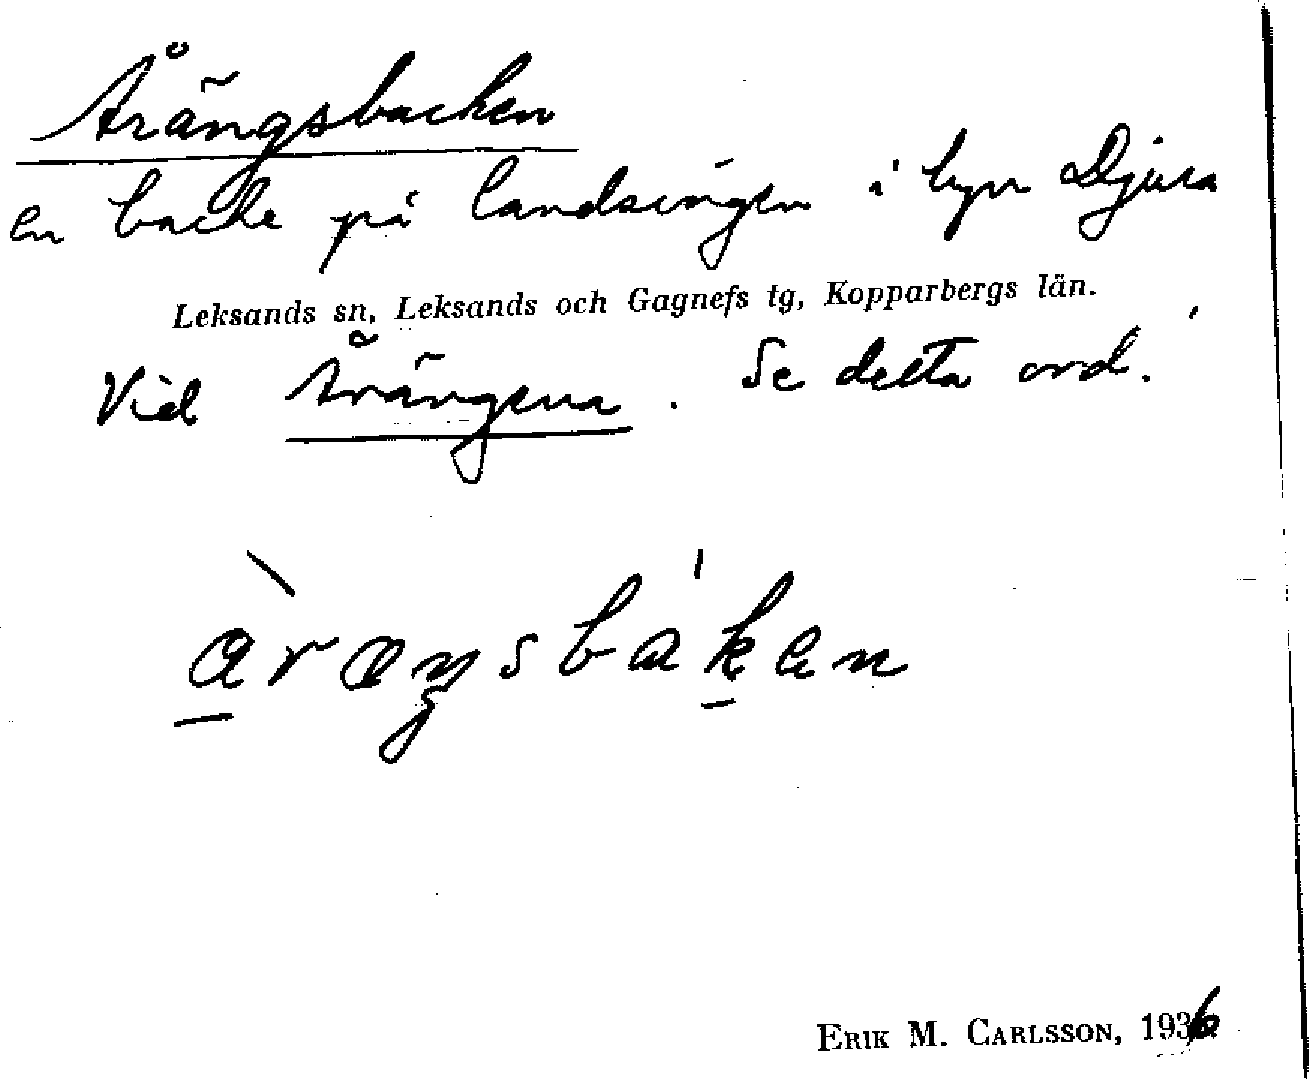 Årängsbacken
en backe på landsvägen i byn Djura
Leksands sn, Leksands och Gagnefs tg, Kopparbergs län.
Vid Årängena. Se detta ord.
ERIK M. CARLSSON, 1936